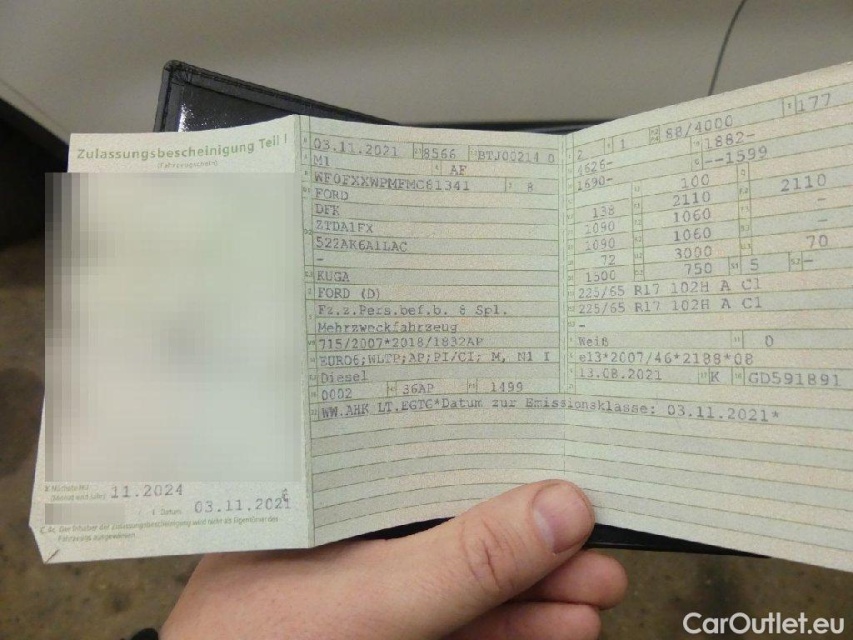 Zulassungsbescheinigung Teil I
(Fahrzeugschein)
11.2024
03.11.2021
03.11.2021 8566 BTJ00214 0
M1 AF
WF0FXXWPMFMC81341 8
FORD
DFK
ZTDA1FX
522AK6A1LAC
-
KUGA
FORD (D)
Fz.z.Pers.bef.b. 8 Spl.
Mehrzweckfahrzeug
715/2007*2018/1832AP
EURO6;WLTP;AP;PI/CI; M, N1 I
Diesel
0002 36AP 1499
WW.AHK LT.EGTG*Datum zur Emissionsklasse: 03.11.2021*
2 1 88/4000 177
4626- 1882-
1690- --1599
100
138 2110 2110
1090 1060 -
1090 1060 -
72 3000 70
1500 750 5 -
225/65 R17 102H A C1
225/65 R17 102H A C1
-
Weiß 0
e13*2007/46*2188*08
13.08.2021 K GD591891
CarOutlet.eu